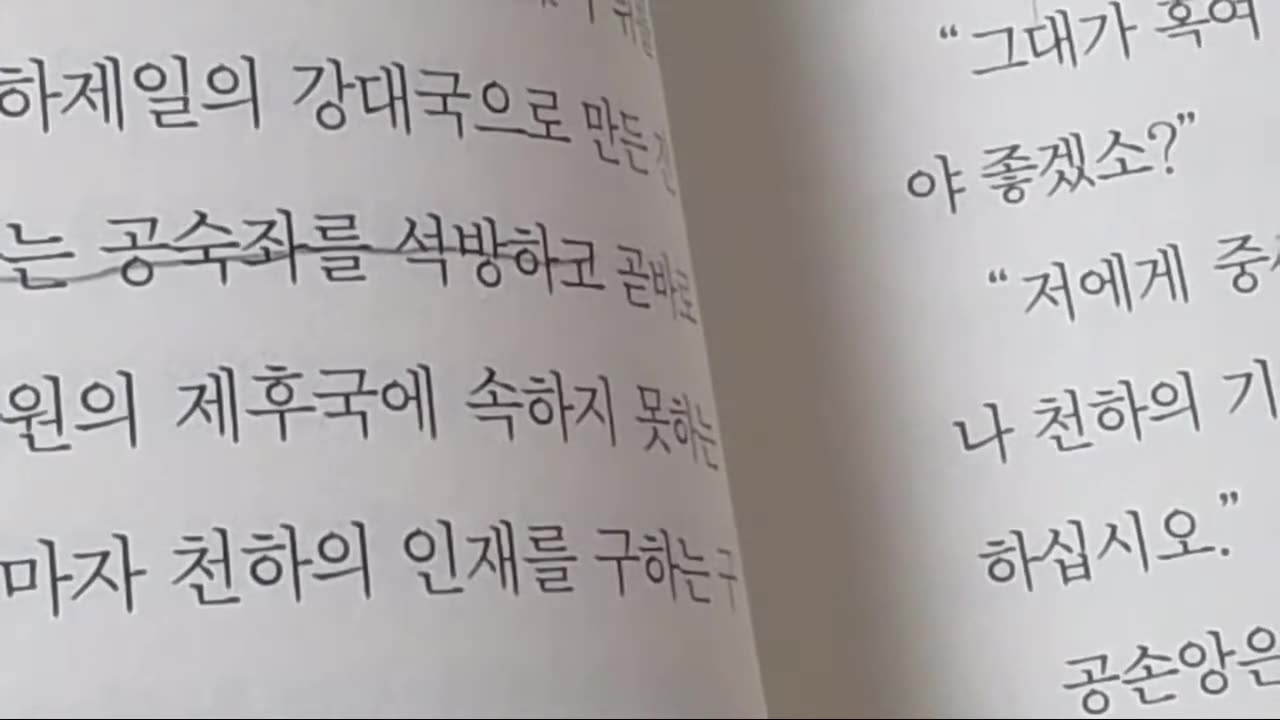 하제일의 강대국으로 만든
는 공숙좌를 석방하고 곧바로
원의 제후국에 속하지 못하는
마자 천하의 인재를 구하는
“그대가 혹여
야 좋겠소?”
“저에게
나 천하의 기
하십시오.”
공손앙은